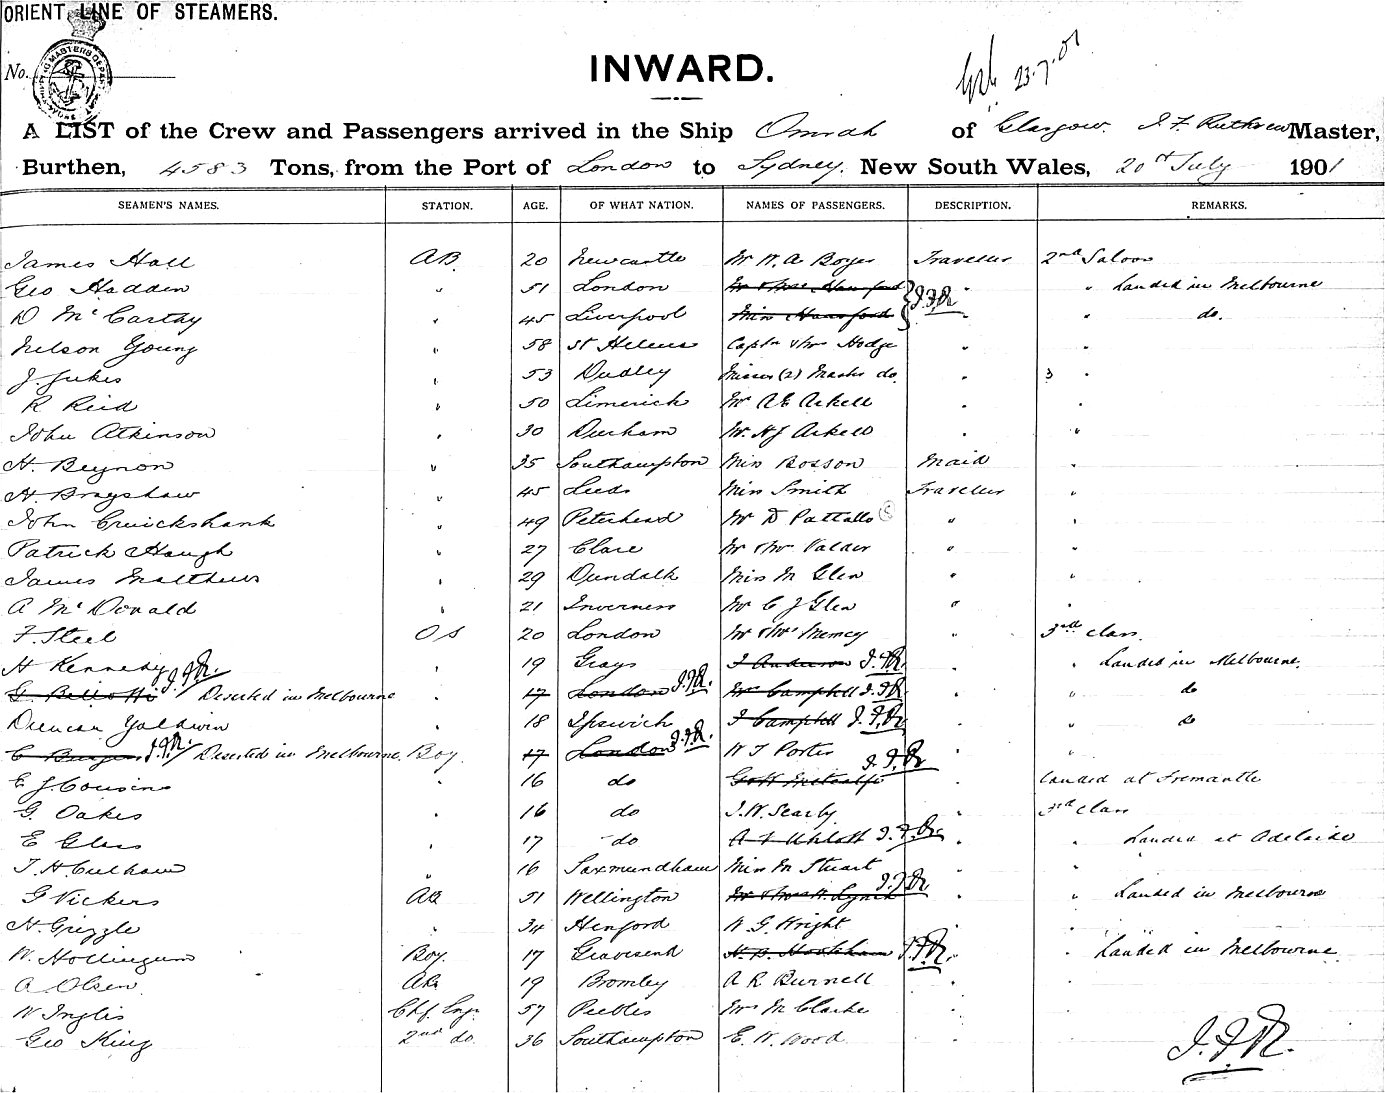 ORIENT LINE OF STEAMERS.
No.
INWARD.
23.7.01
A LIST of the Crew and Passengers arrived in the Ship Omrah of Glasgow. J. F. Ruthven Master,
Burthen, 4583 Tons, from the Port of London to Sydney. New South Wales, 20th July 1901
SEAMEN'S NAMES. STATION. AGE. OF WHAT NATION. NAMES OF PASSENGERS. DESCRIPTION. REMARKS.
James Hall AB. 20 Newcastle Mr W. A Boyes Traveller 2nd Saloon
Geo Hadden " 51 London Hansford J.F.R. " " Landed in Melbourne
D McCarthy " 45 Liverpool Miss Hansford " " do.
Nelson Young " 58 St Helens Captn & Mrs Hodge " "
J. Jukes " 53 Dudley Misses (2) Master do. " 3 "
R Reid " 50 Limerick Mr A E Arkell " "
John Atkinson " 30 Durham Mr. H J Arkell " "
H. Beynon " 35 Southampton Miss Bosson Maid "
H. Bragshaw " 45 Leeds Miss Smith Traveller "
John Cruickshank " 49 Peterhead Mr D Pattallo (S) " "
Patrick Haugh " 27 Clare Mr & Mrs Valder " "
James Matthews " 29 Dundalk Miss M Glen " "
A McDonald " 21 Inverness Mr C J Glen " "
F. Steel O S 20 London Mr & Mrs " 3rd class.
H Kennedy " 19 Grays J Anderson J.F.R. " " Landed in Melbourne.
G. J.F.R. / Deserted in Melbourne " 17 London J.F.R. Mr Campbell J.F.R " " do
Duncan Yaldwin " 18 Ipswich J Campbell J.F.R " " do
C J.F.R. / Deserted in Melbourne. Boy. 17 London J.F.R. W J Porter " "
E J. Cousins " 16 do Metcalfe J.F.R " Landed at Fremantle
G. Oakes " 16 do J. W. Searby " 3rd class
E Glass " 17 do A J.F.R. " " Landed at Adelaide
J. H. Culham " 16 Saxmundham Miss M Stuart " "
G Vickers AB 51 Wellington Lynch J.F.R " " Landed in Melbourne
H. Grizzle " 34 W. G. Wright " "
W. Hollingum Boy. 17 Gravesend H. J.F.R. " " Landed in Melbourne
A Olsen. AB. 19 Bromley A R Burnell " "
W Inglis Chf. Engr. 57 Peebles Mrs M Clarke " "
Geo King 2nd do. 36 Southampton E. W. Wood " "
J. F. R.